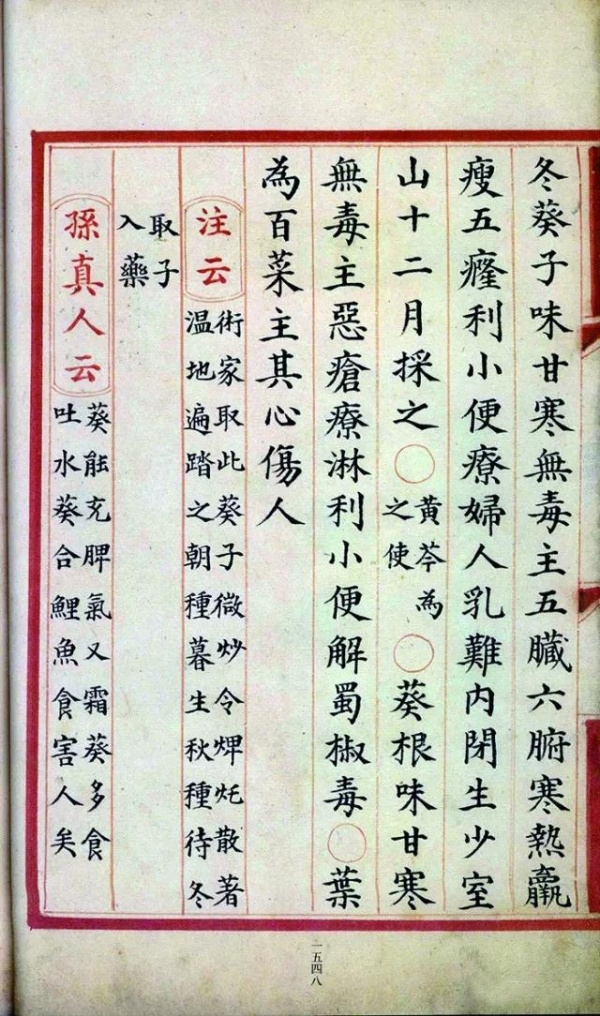 冬葵子味甘寒無毒主五臟六腑寒熱羸
瘦五癃利小便療婦人乳難內閉生少室
山十二月採之○黃芩為之使○葵根味甘寒
無毒主惡瘡療淋利小便解蜀椒毒○葉
為百菜主其心傷人
注云術家取此葵子微炒令熚灹散著
溫地遍踏之朝種暮生秋種待冬
取子
入藥
孫真人云葵能充脾氣又霜葵多食
吐水葵合鯉魚食害人矣
一五四八